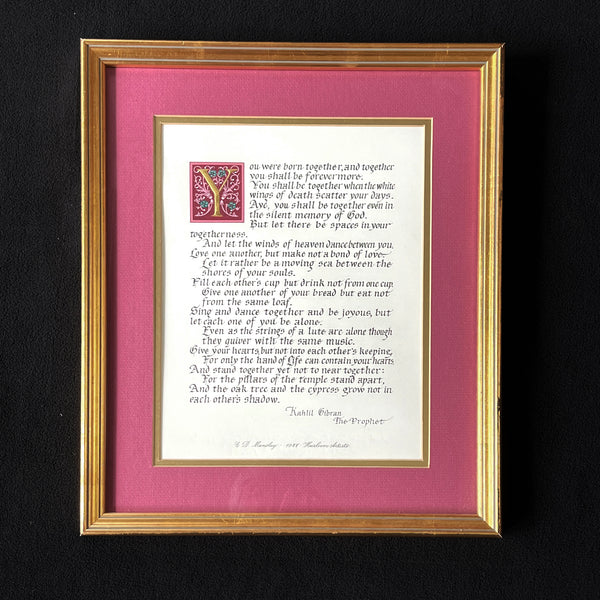 You were born together, and together
you shall be forevermore.
You shall be together when the white
wings of death scatter your days.
Aye, you shall be together even in
the silent memory of God.
But let there be spaces in your
togetherness.
And let the winds of heaven dance between you.
Love one another, but make not a bond of love.
Let it rather be a moving sea between the
shores of your souls.
Fill each other's cup but drink not from one cup.
Give one another of your bread but eat not
from the same loaf.
Sing and dance together and be joyous, but
let each one of you be alone.
Even as the strings of a lute are alone though
they quiver with the same music.
Give your hearts, but not into each other's keeping,
For only the hand of Life can contain your hearts
And stand together yet not to near together:
For the pillars of the temple stand apart,
And the oak tree and the cypress grow not in
each other's shadow.
Kahlil Gibran
The Prophet